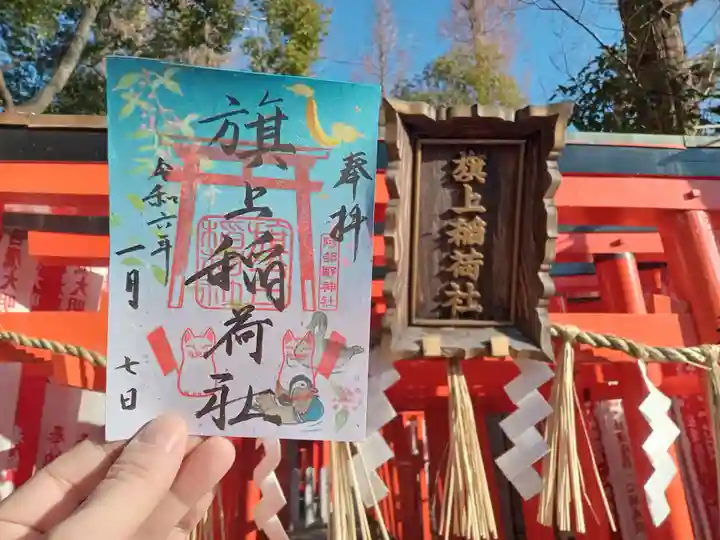 奉拝
旗上稲荷社
令和六年
一月
七日
旗上稲荷社